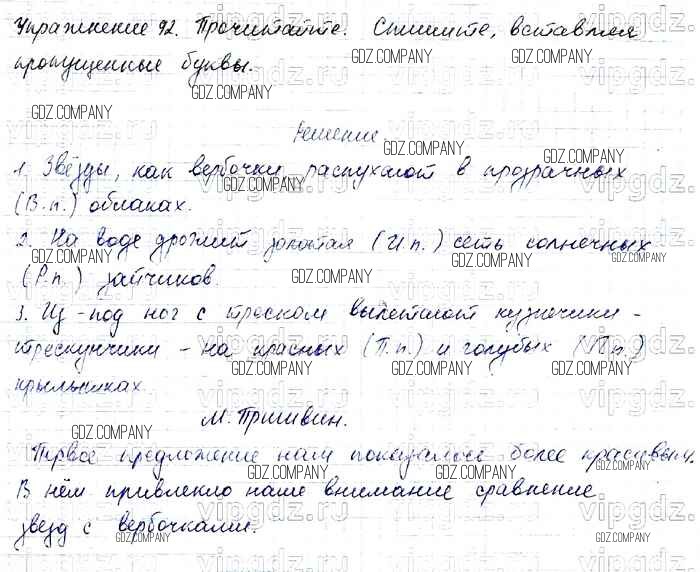 Упражнение 92. Прочитайте. Спишите, вставляя
пропущенные буквы.
Решение
1. Звёзды, как вербочки, распухают в прозрачных
(В.п.) облаках.
2. На воде дрожит золотая (И.п.) сеть солнечных
(Р.п.) зайчиков.
3. Из-под ног с треском вылетают кузнечики-
трескунчики - на красных (П.п.) и голубых (П.п.)
крыльышках.
М. Пришвин.
Первое предложение нам показалось более красивым.
В нём привлекло наше внимание сравнение
звезд с вербочками.
GDZ.COMPANY
vipgdz.ru